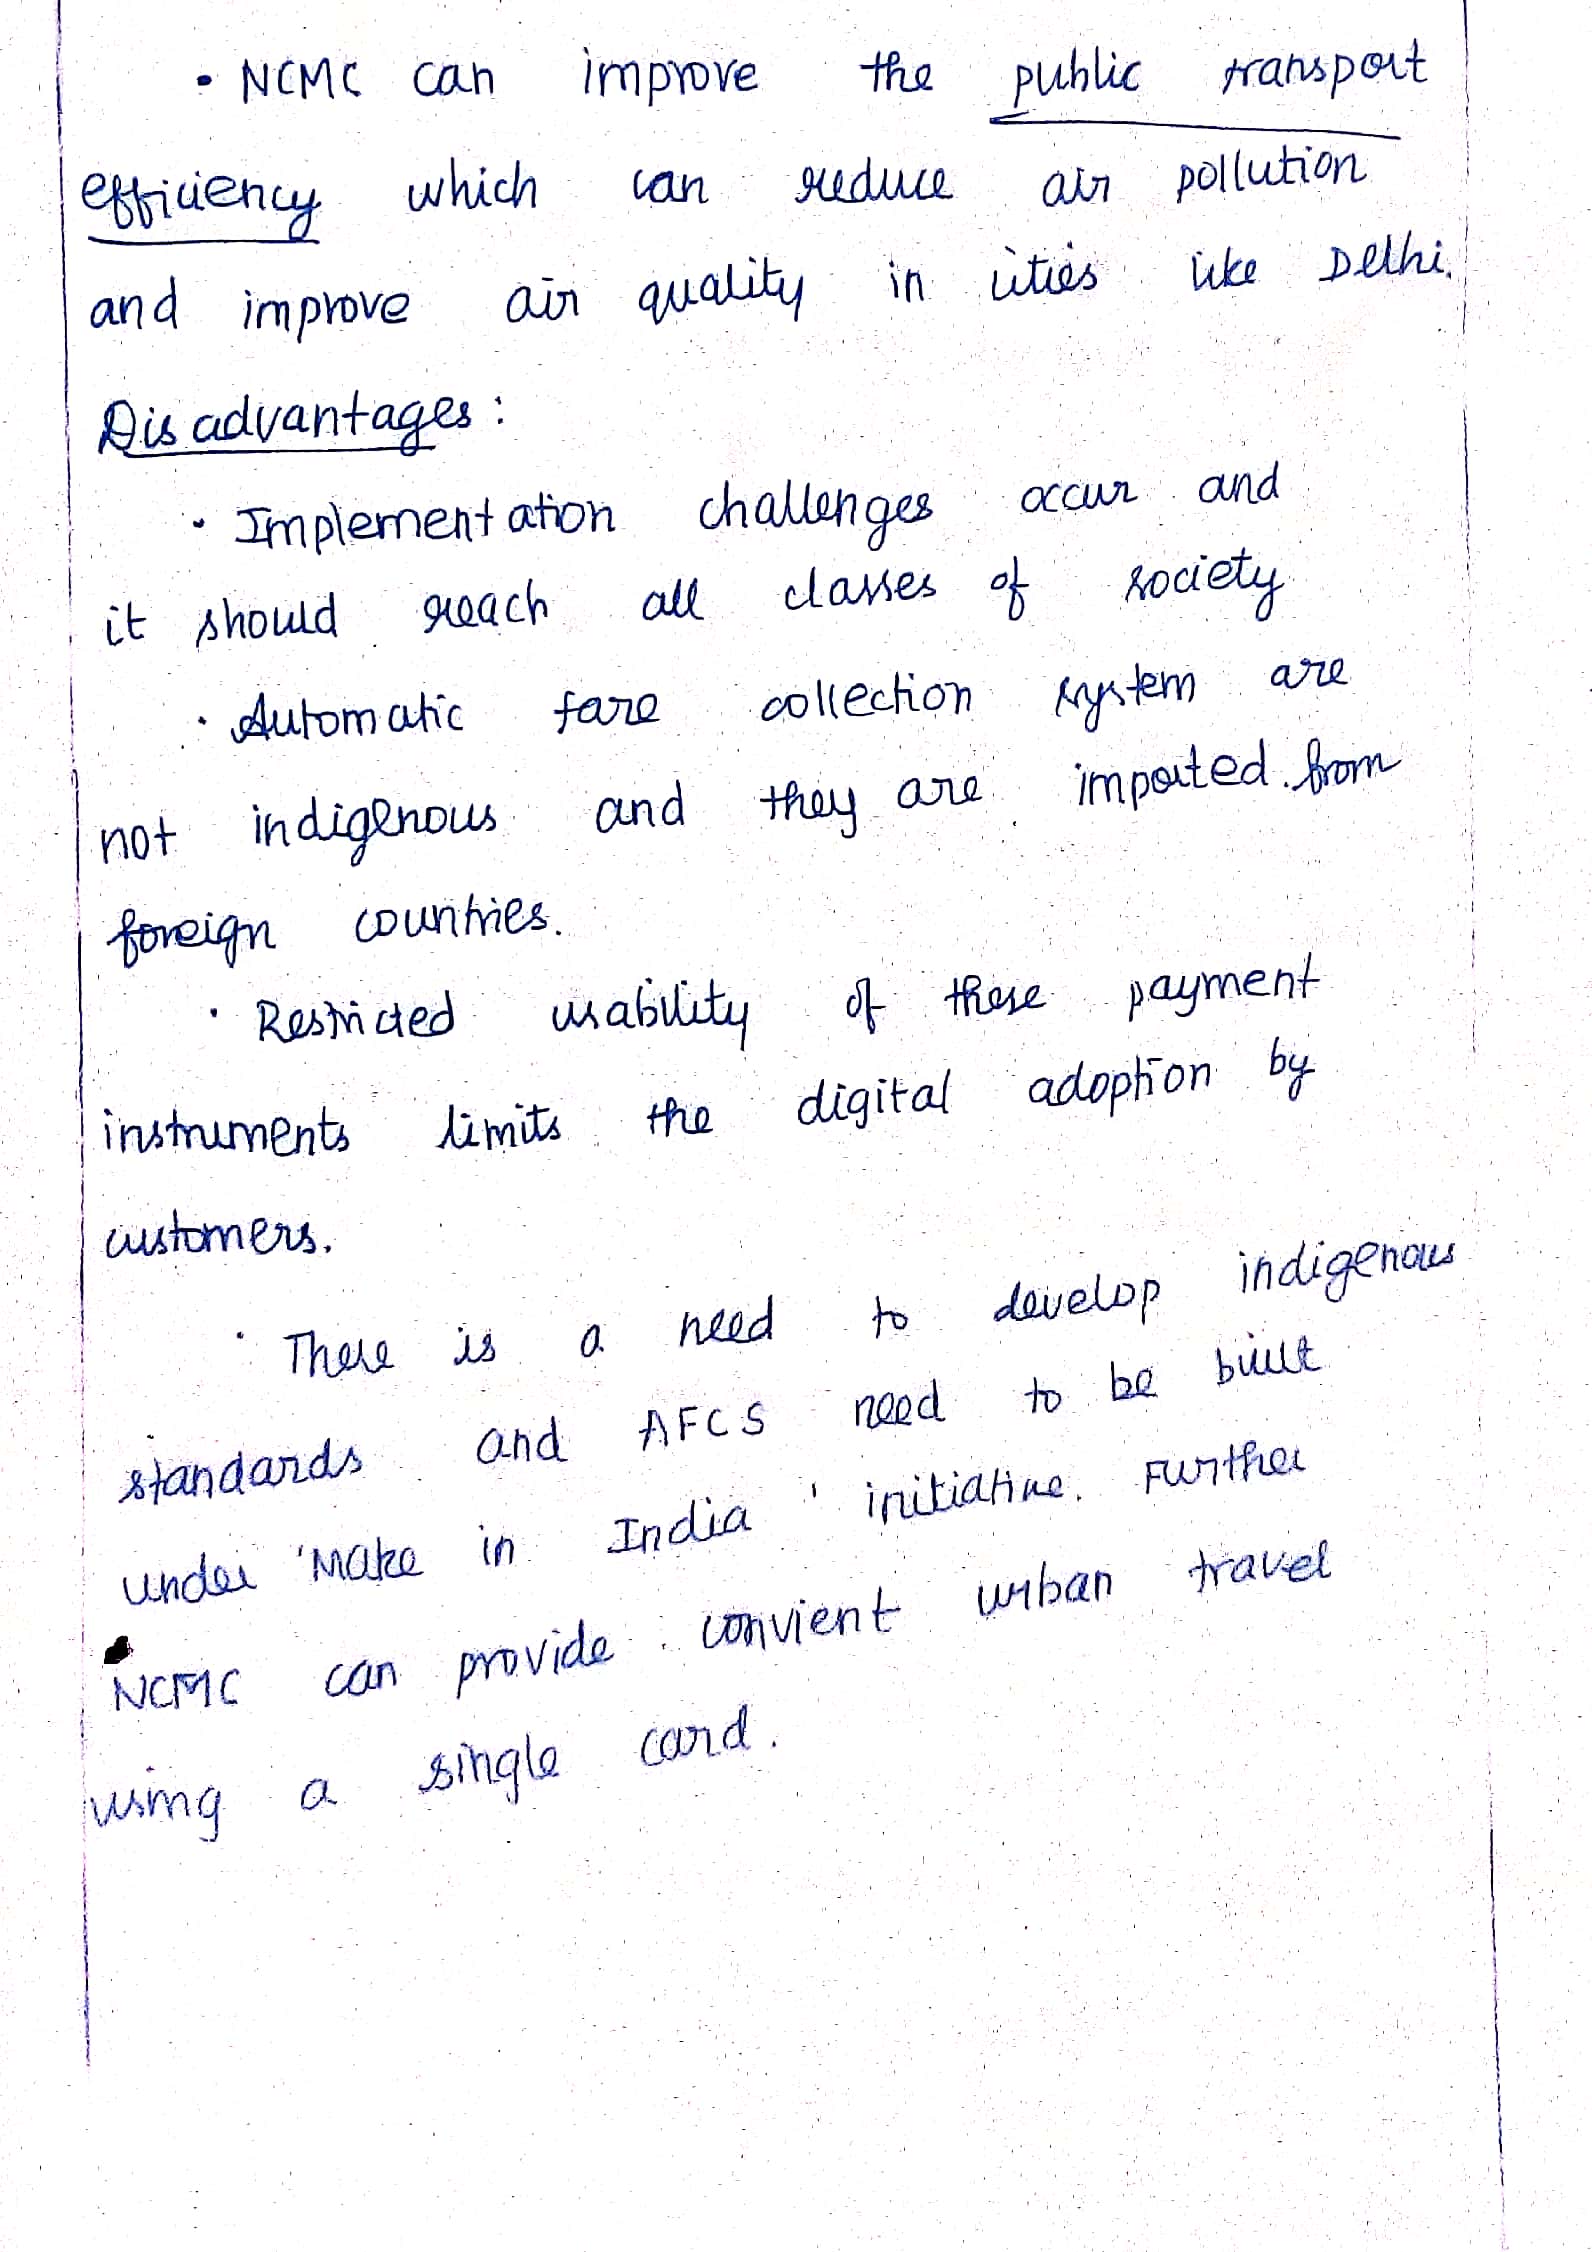 • NCMC can improve the public transport
efficiency which can reduce air pollution
and improve air quality in cities like Delhi.
Disadvantages :
• Implementation challenges occur and
it should reach all classes of society
• Automatic fare collection system are
not indigenous and they are imported from
foreign countries.
• Restricted usability of these payment
instruments limits the digital adoption by
customers.
• There is a need to develop indigenous
standards and AFCS need to be built
under 'Make in India' initiative. Further
NCMC can provide convient urban travel
using a single card.